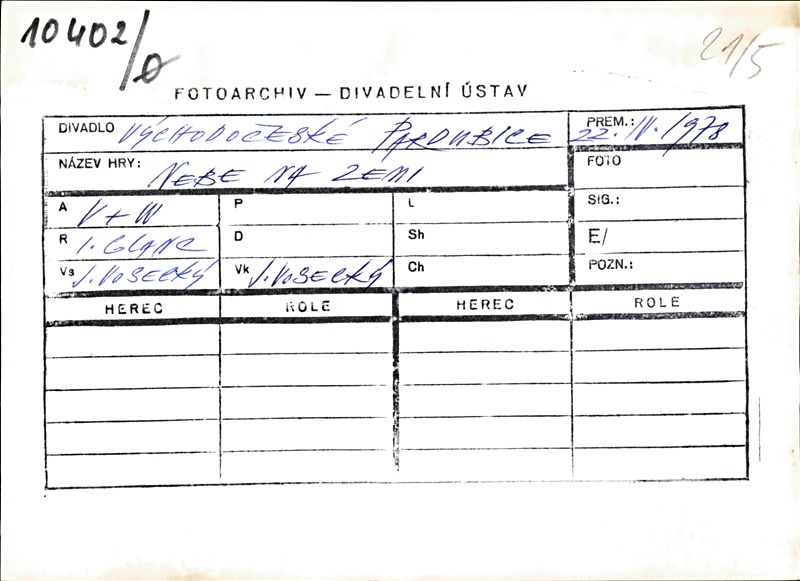 10402/0
21/5
FOTOARCHIV — DIVADELNÍ ÚSTAV
DIVADLO VÝCHODOČESKÉ PARDUBICE
PREM.: 22. IV. 1978
NÁZEV HRY: NEBE NA ZEMI
FOTO
A V + W
P
L
SIG.:
R I. GLANC
D
Sh
E/
Vs J. VOSECKÝ
Vk J. VOSECKÝ
Ch
POZN.:
HEREC ROLE HEREC ROLE